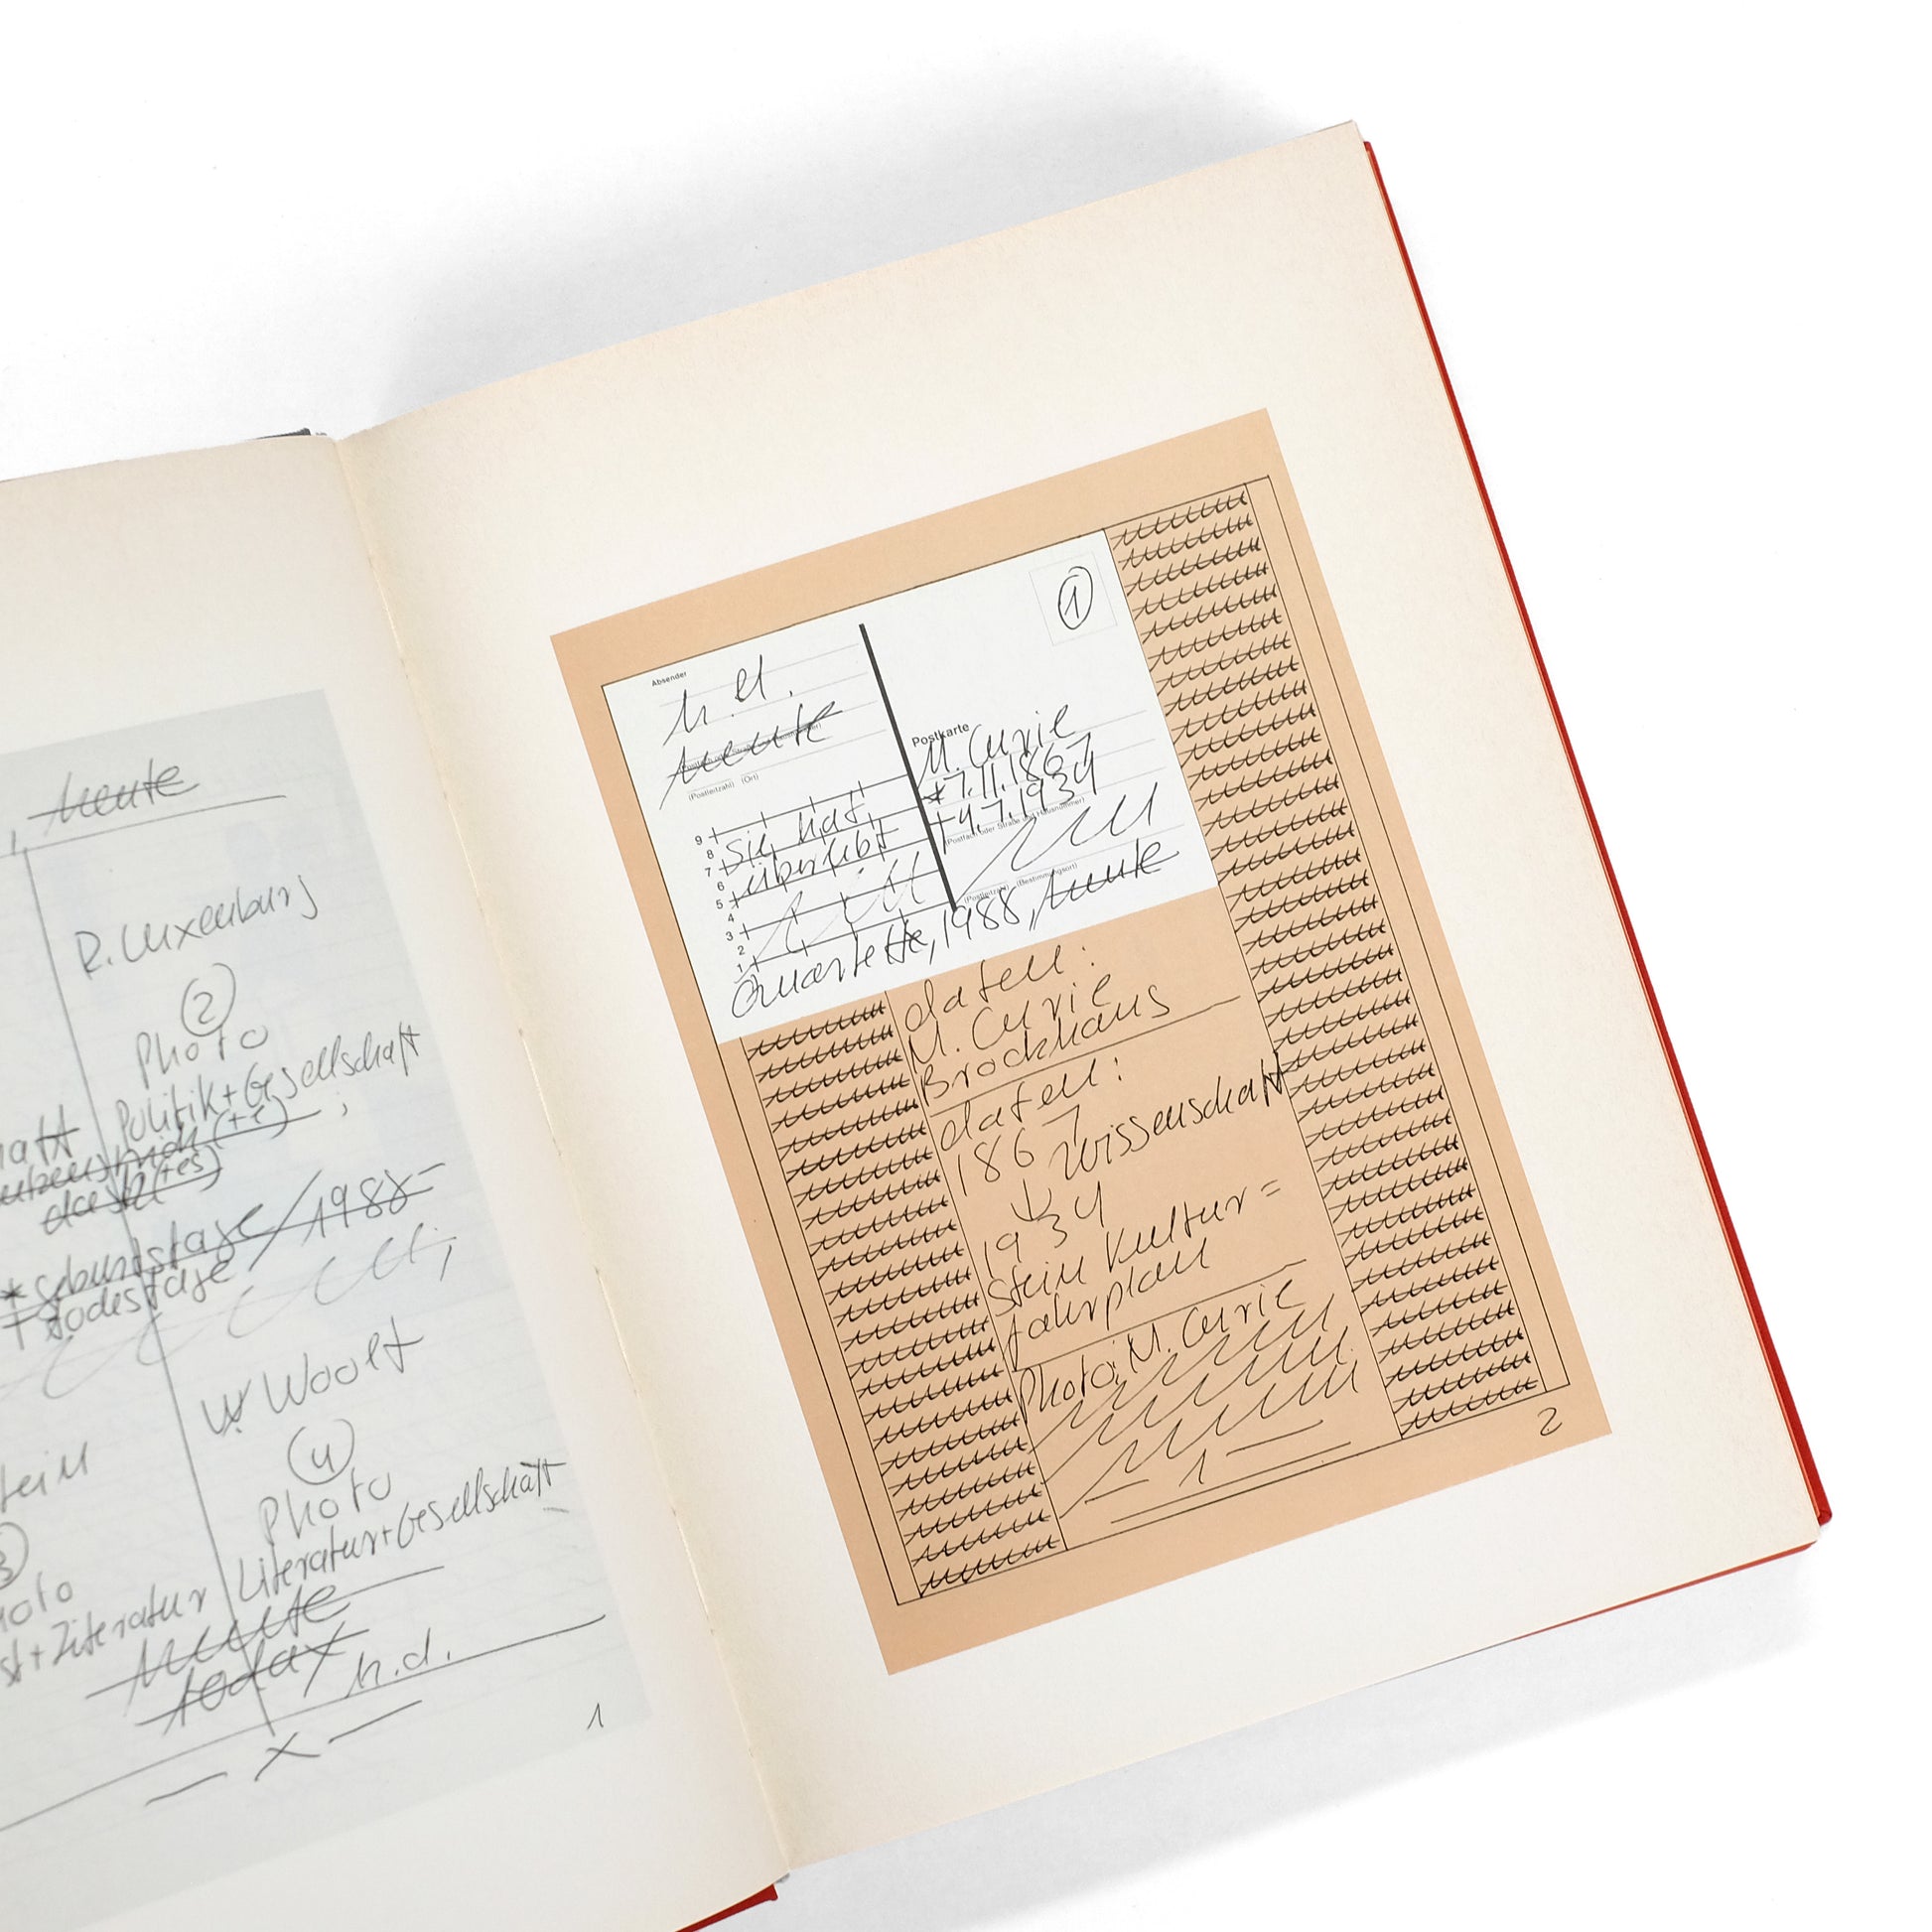 , heute
R. Luxemburg
2
Photo
Politik + Gesellschaft
(+r) ;
das (+es)
* geburtstage / 1988 =
† todestage
W Woolf
4
Photo
Literatur + Gesellschaft
+ Literatur
heute
h.d.
x
1
1
Absender
h. d.
heute
(Postleitzahl) (Ort)
9
8
7
6
5
4
3
2
1
sie hat
überlebt
Postkarte
M. Curie
* 7.11.1867
† 4.7.1934
(Postfach oder Straße und Hausnummer)
(Postleitzahl) (Bestimmungsort)
Quartette, 1988, heute
daten:
M. Curie
Brockhaus
daten:
1867
Wissenschaft
1934
Stein Kultur =
fahrplan
Photo: M. Curie
1
2